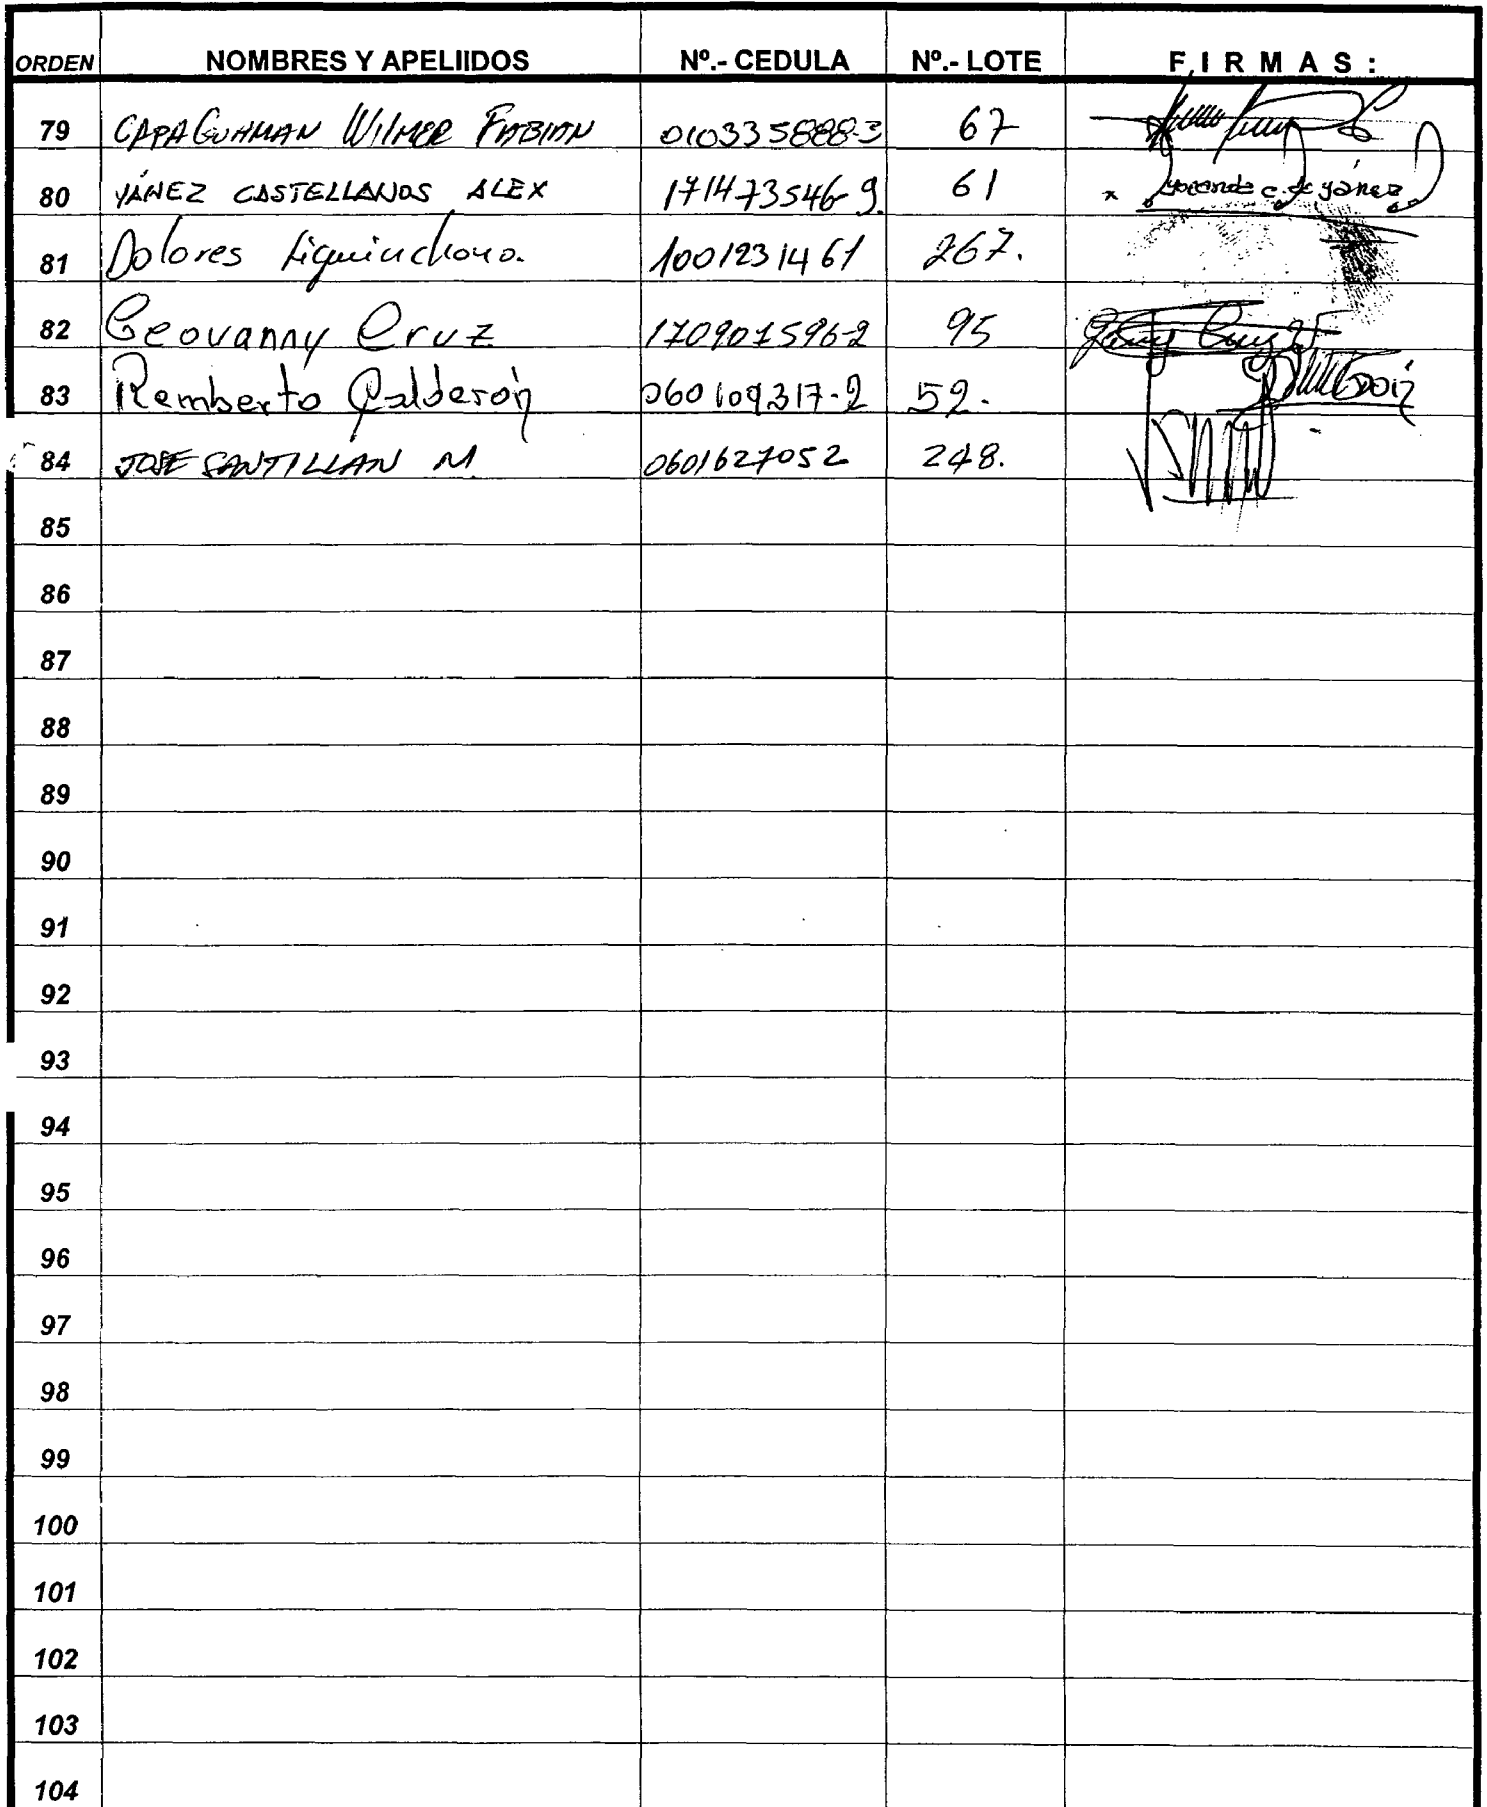 ORDEN NOMBRES Y APELIIDOS Nº.- CEDULA Nº.- LOTE F I R M A S :
79 CAPA GUAMAN WILMER FABIAN 010335888-3 67
80 YÁNEZ CASTELLANOS ALEX 171473546-9. 61 x c. de yánez
81 Dolores 1001231461 267.
82 Geovanny Cruz 170901596-2 95
83 Remberto Calderón 060109317-2 52.
84 JOSE SANTILLAN M 0601627052 248.
85
86
87
88
89
90
91
92
93
94
95
96
97
98
99
100
101
102
103
104